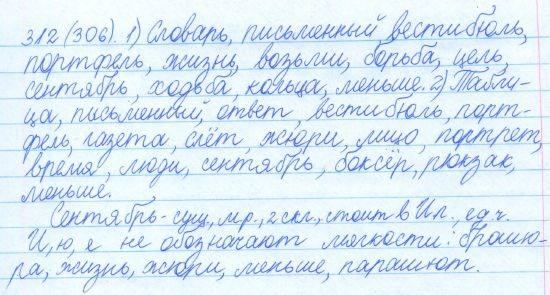 312 (306). 1) Словарь, письменный вестибюль,
портфель, жизнь, возьми, борьба, цель,
сентябрь, ходьба, кольца, меньше. 2) Табли-
ца, письменный, ответ, вестибюль, порт-
фель, газета, слёт, жюри, лицо, портрет,
время, люди, сентябрь, боксёр, рюкзак,
меньше.
Сентябрь - сущ., м.р., 2 скл., стоит в И.п., ед.ч.
И, ю, е не обозначают мягкости: брошю-
ра, жизнь, жюри, меньше, парашют.